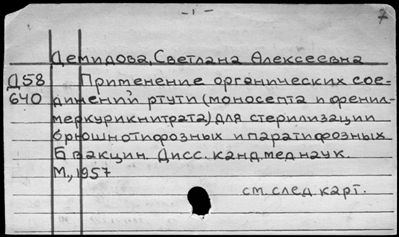 - 1 -
7
Демидова, Светлана Алексеевна
Д58 Применение органических сое-
640 динений ртути (моносепта и фенил-
меркурикнитрата) для стерилизации
брюшнотифозных и паратифозных
Б вакцин. Дисс. канд. мед наук.
М., 1957
см. след. карт.